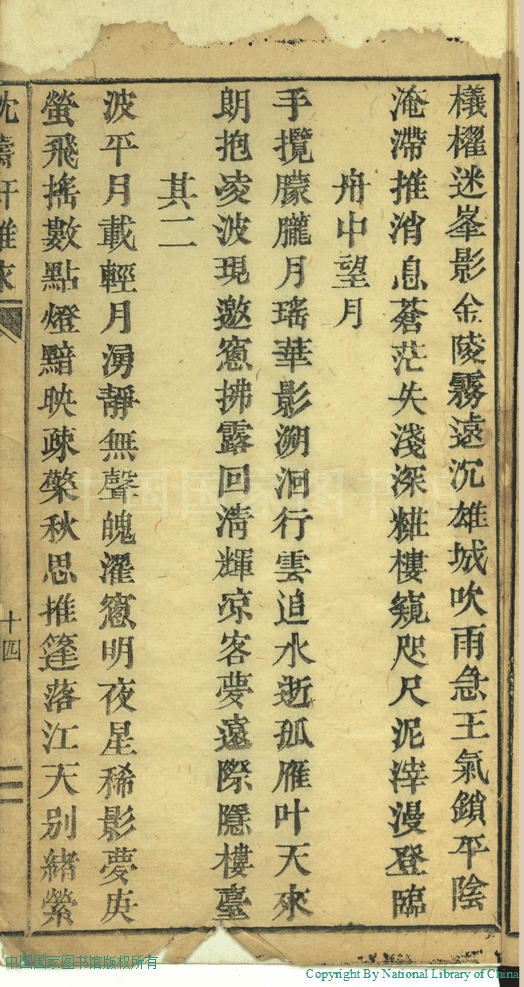 檥櫂迷峯影金陵霧遠沉雄城吹雨急王氣鎖平陰
淹滯推消息蒼茫失淺深糚樓窺咫尺泥滓漫登臨
舟中望月
手攬朦朧月瑤華影溯洄行雲追水逝孤雁叶天來
朗抱凌波現邀窻拂露回淸輝凉客夢遠際隱樓臺
其二
波平月載輕月湧靜無聲魄濯窻明夜星稀影夢庚
螢飛搖數點燈黯映疎檠秋思推篷落江天別緒縈
十四
中国国家图书馆
中国国家图书馆版权所有
Copyright By National Library of China